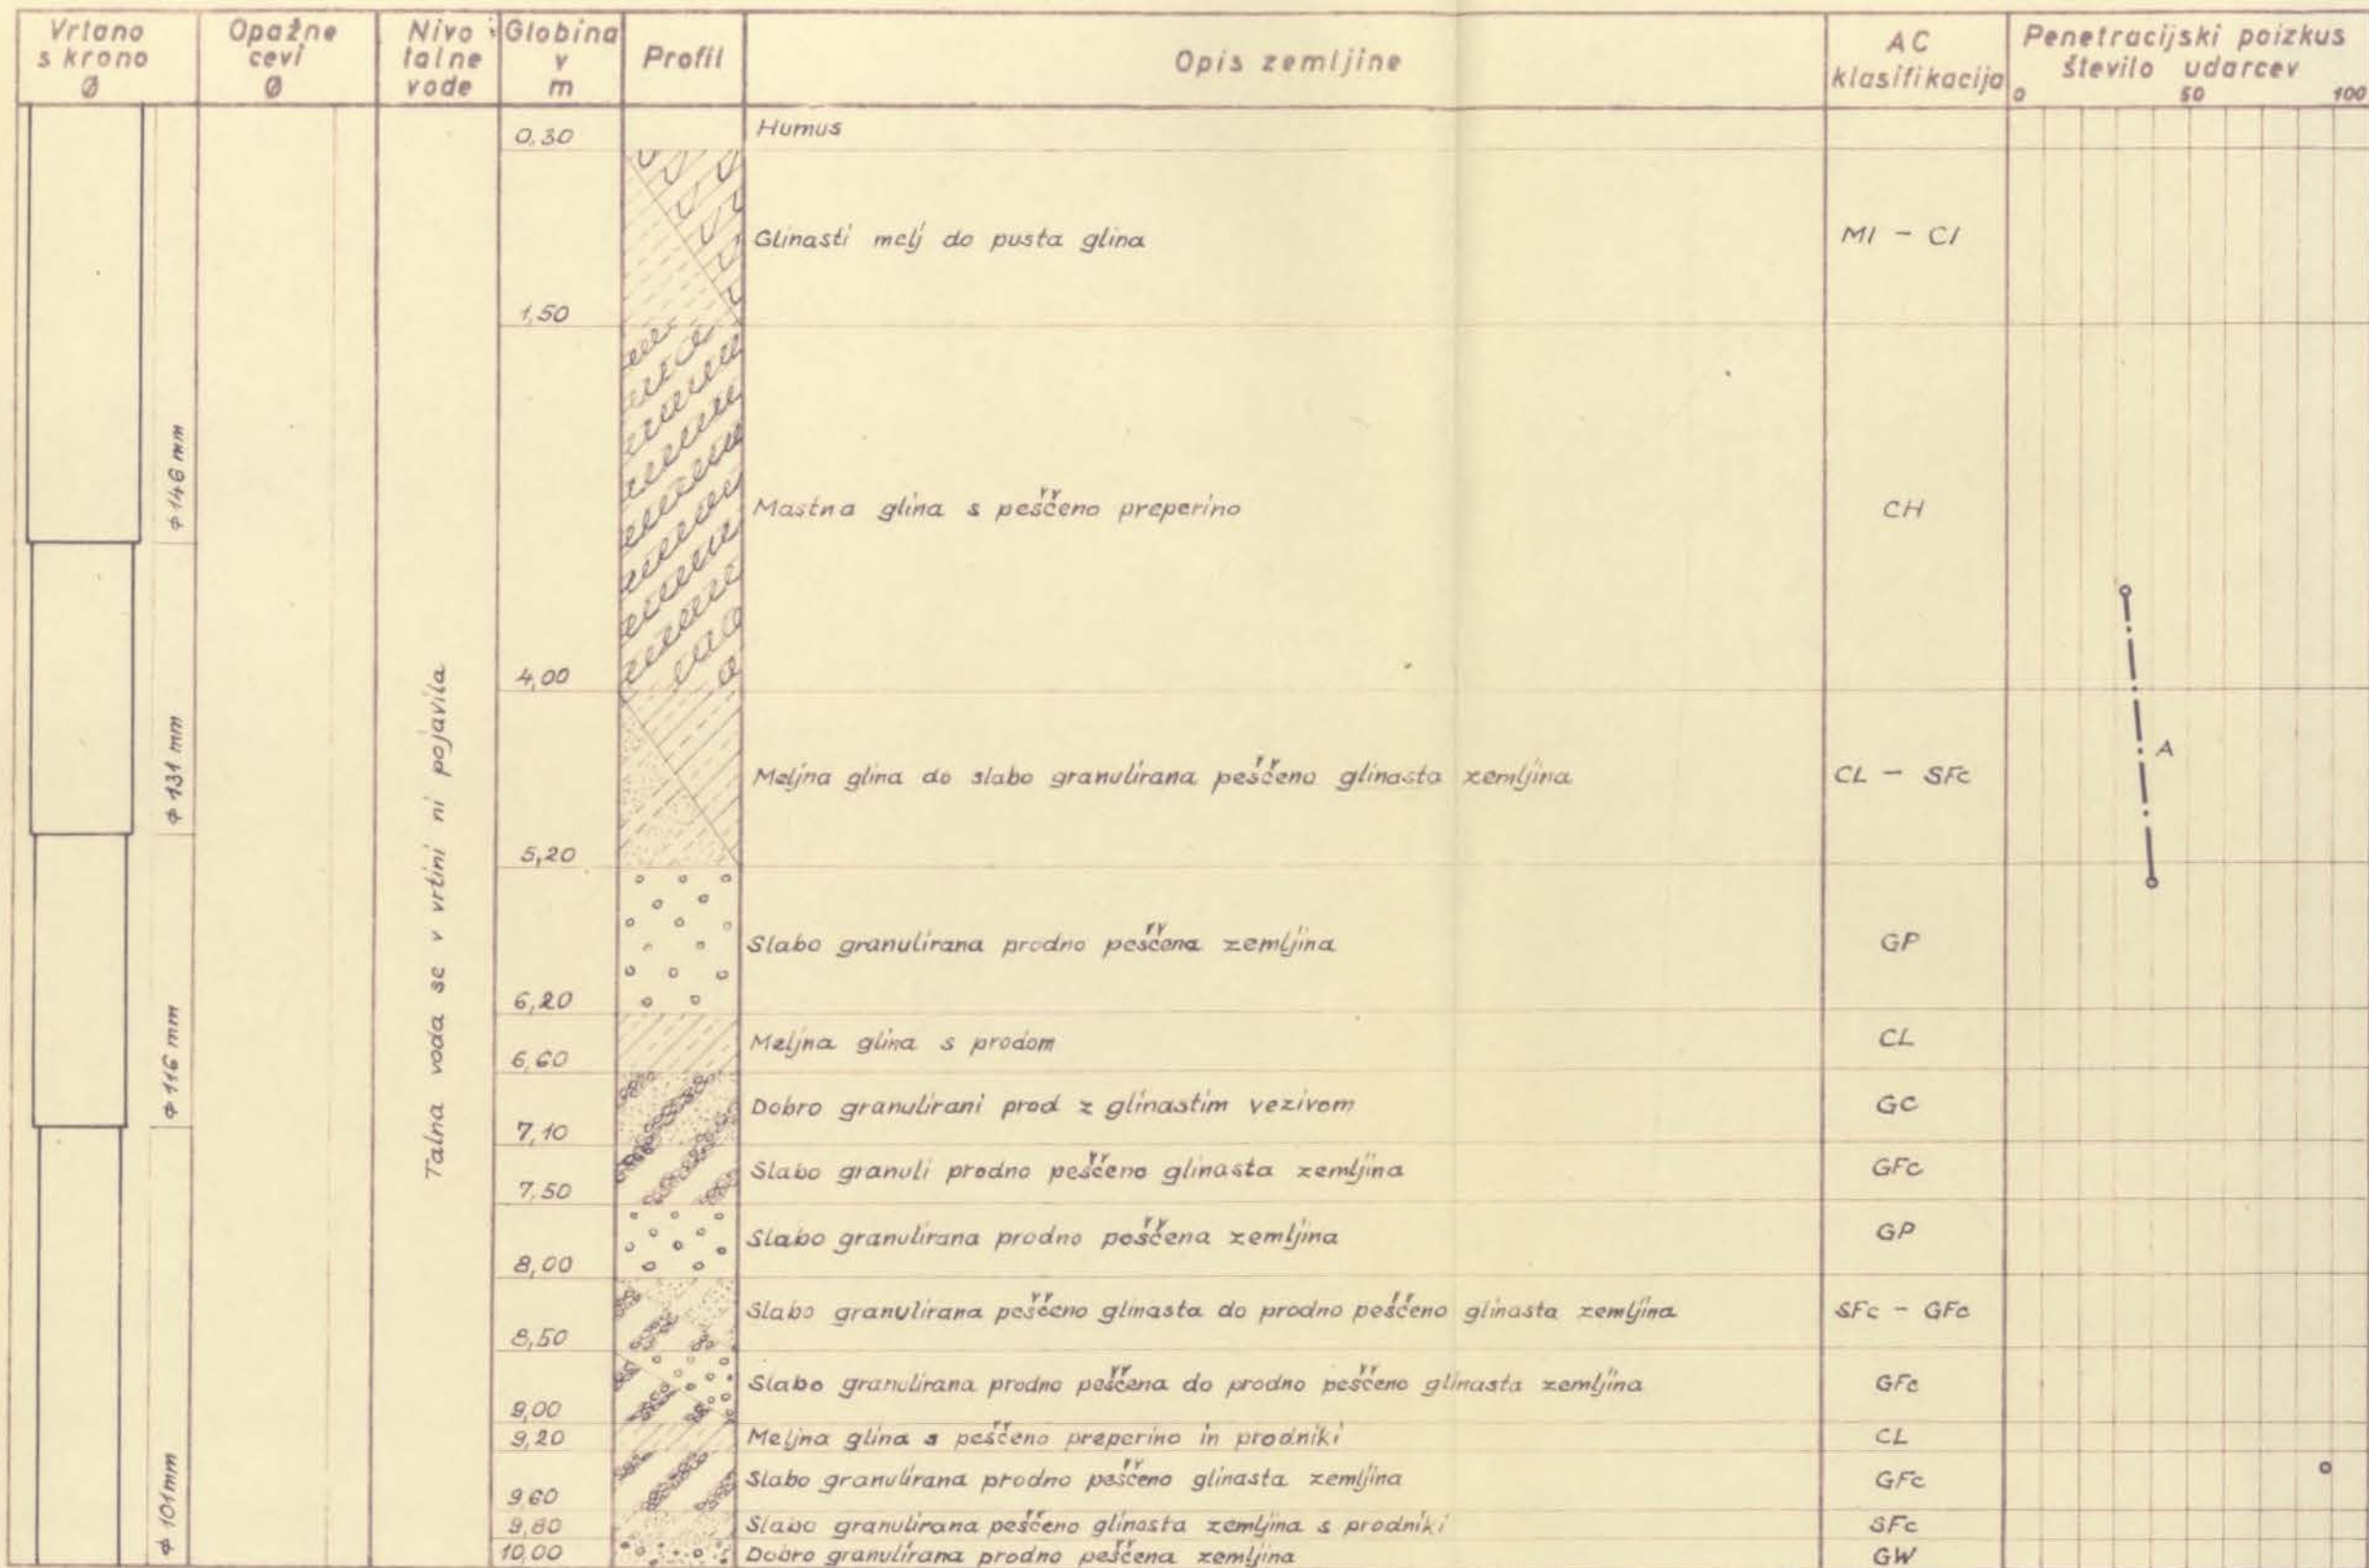 Vrtano s krono Ø
Opažne cevi Ø
Nivo talne vode
Globina v m
Profil
Opis zemljine
AC klasifikacija
Penetracijski poizkus število udarcev
0 50 100
0,30 Humus
Glinasti melj do pusta glina MI - CI
1,50
φ 146 mm
Mastna glina s peščeno preperino CH
4,00
Talna voda se v vrtini ni pojavila
φ 131 mm
Meljna glina do slabo granulirana peščeno glinasta zemljina CL - SFc
A
5,20
Slabo granulirana prodno peščena zemljina GP
6,20
φ 116 mm
Meljna glina s prodom CL
6,60
Dobro granulirani prod z glinastim vezivom GC
7,10
Slabo granuli prodno peščeno glinasta zemljina GFc
7,50
Slabo granulirana prodno peščena zemljina GP
8,00
Slabo granulirana peščeno glinasta do prodno peščeno glinasta zemljina SFc - GFc
8,50
Slabo granulirana prodno peščena do prodno peščeno glinasta zemljina GFc
9,00
9,20 Meljna glina s peščeno preperino in prodniki CL
Slabo granulirana prodno peščeno glinasta zemljina GFc
9,60
φ 101mm
9,80 Slabo granulirana peščeno glinasta zemljina s prodniki SFc
10,00 Dobro granulirana prodno peščena zemljina GW